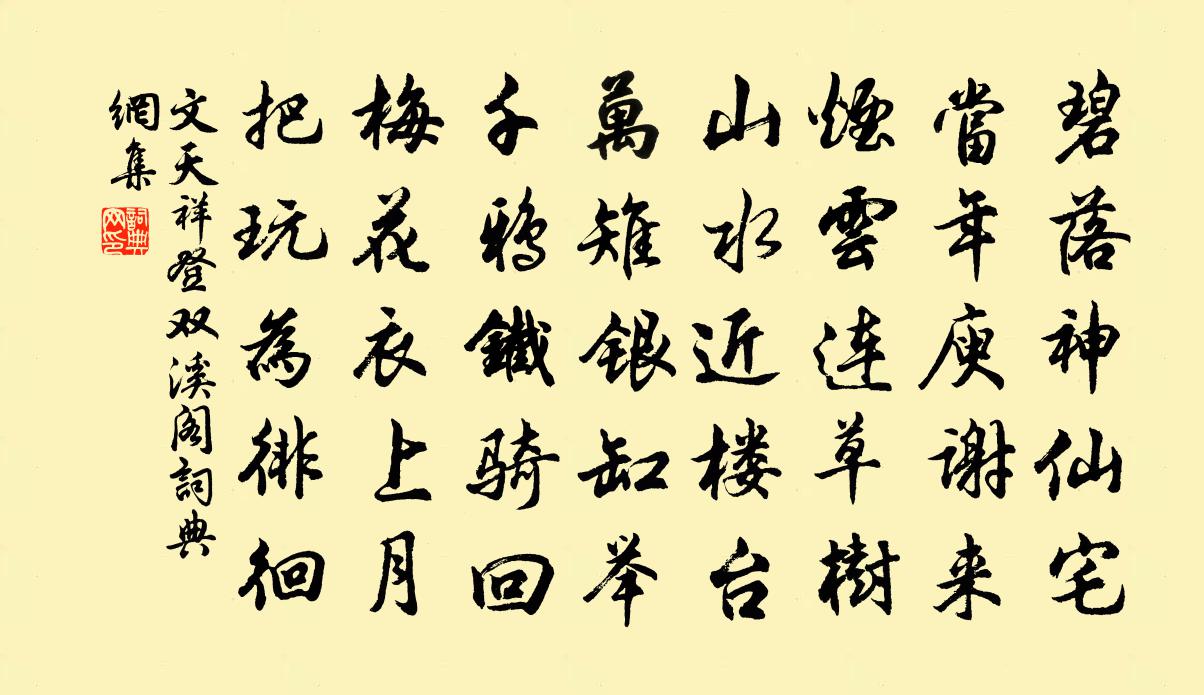 碧落神仙宅
當年庾謝来
煙雲連草樹
山水近楼台
萬雉銀缸举
千鴉鐵骑回
梅花衣上月
把玩為徘徊
文天祥登双溪阁詞典
網集
詞典
网印